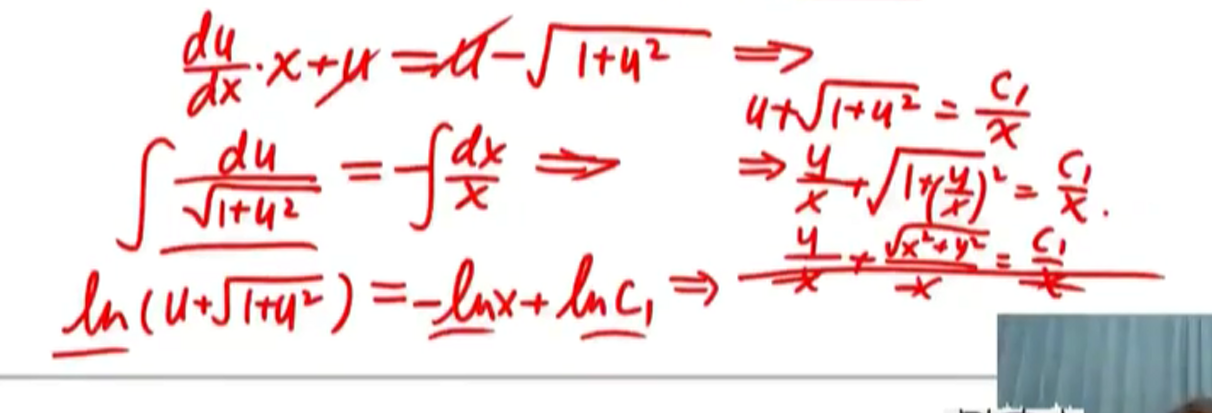 du/dx · x + u = u - √(1+u²) ⇒
∫ du/√(1+u²) = -∫ dx/x ⇒
ln(u+√(1+u²)) = -lnx + lnC₁ ⇒
u+√(1+u²) = C₁/x
⇒ y/x + √(1+(y/x)²) = C₁/x.
y/x + √(x²+y²)/x = C₁/x